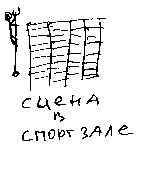 СЦЕНА
В
СПОРТЗАЛЕ